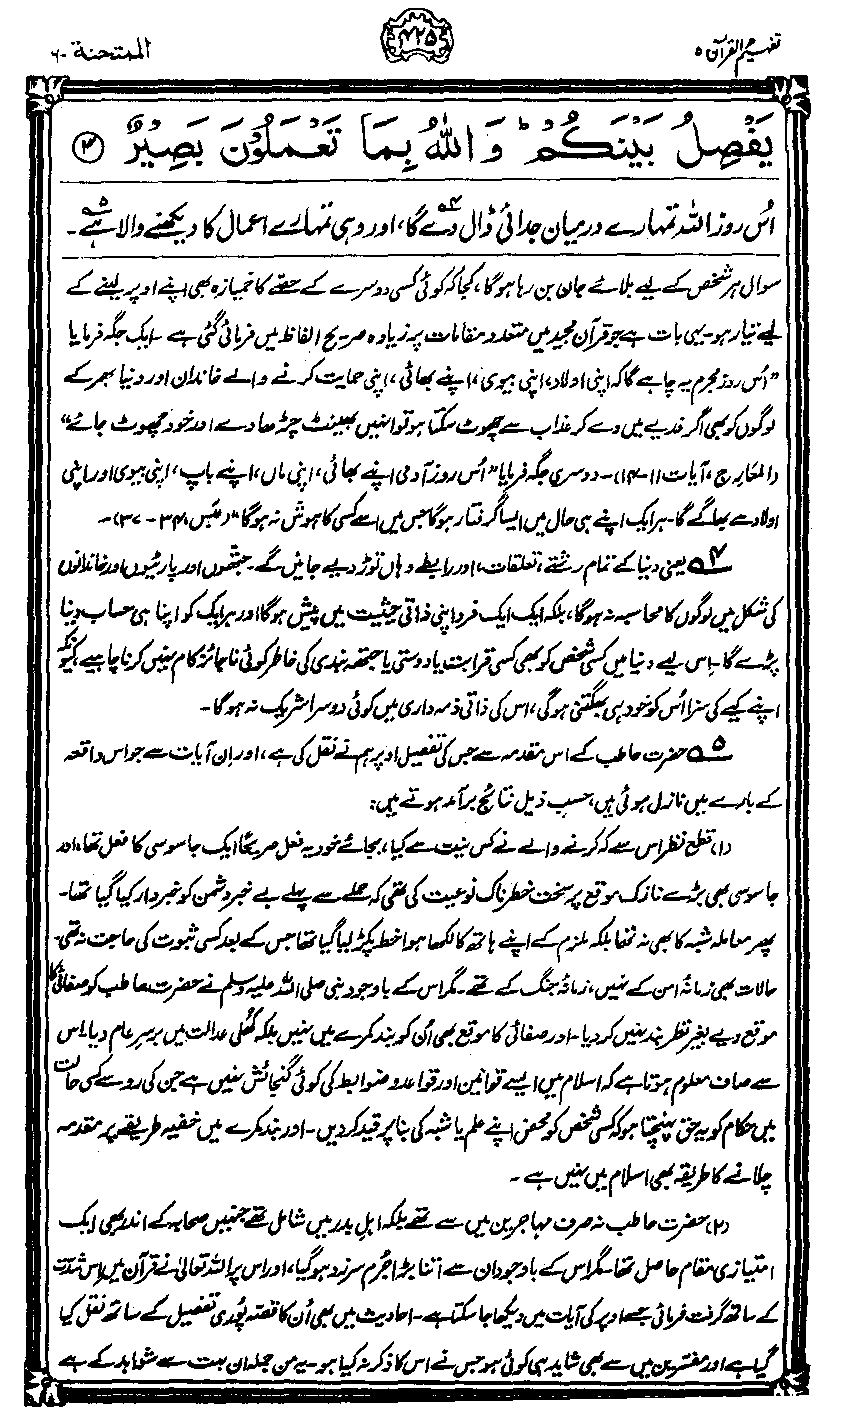 تفہیم القرآن ۵
۴۲۵
الممتحنة ۶۰
يَفْصِلُ بَيْنَكُمْ ۭ وَاللّٰهُ بِمَا تَعْمَلُوْنَ بَصِيْرٌ ۝۳
اُس روز اللہ تمہارے درمیان جدائی ڈال دے گا،۴؎ اور وہی تمہارے اعمال کا دیکھنے والا ہے۔۵؎
سوال ہر شخص کے لیے بلائے جان بن رہا ہوگا، کجا کہ کوئی کسی دوسرے کے حصے کا خمیازہ بھی اپنے اوپر لینے کے
لیے تیار ہو۔ یہی بات ہے جو قرآن مجید میں متعدد مقامات پر زیادہ صریح الفاظ میں فرمائی گئی ہے۔ ایک جگہ فرمایا
”اُس روز مجرم یہ چاہے گا کہ اپنی اولاد، اپنی بیوی، اپنے بھائی، اپنی حمایت کرنے والے خاندان اور دنیا بھر کے
لوگوں کو بھی اگر فدیے میں دے کر عذاب سے چھوٹ سکتا ہو تو انہیں بھینٹ چڑھا دے اور خود چھوٹ جائے“
(المعارج، آیات ۱۱-۱۴)۔ دوسری جگہ فرمایا ”اُس روز آدمی اپنے بھائی، اپنی ماں، اپنے باپ، اپنی بیوی اور اپنی
اولاد سے بھاگے گا۔ ہر ایک اپنے ہی حال میں ایسا گرفتار ہوگا جس میں اسے کسی کا ہوش نہ ہوگا“ (عبس، ۳۴-۳۷)۔
۴؎ یعنی دنیا کے تمام رشتے، تعلقات، اور رابطے وہاں توڑ دیے جائیں گے۔ جتھوں اور پارٹیوں اور خاندانوں
کی شکل میں لوگوں کا محاسبہ نہ ہوگا، بلکہ ایک ایک فرد اپنی ذاتی حیثیت میں پیش ہوگا اور ہر ایک کو اپنا ہی حساب دینا
پڑے گا۔ اِس لیے دنیا میں کسی شخص کو بھی کسی قرابت یا دوستی یا جتھہ بندی کی خاطر کوئی ناجائز کام نہیں کرنا چاہیے کیونکہ
اپنے کیے کی سزا اُس کو خود ہی بھگتنی ہوگی، اس کی ذاتی ذمہ داری میں کوئی دوسرا شریک نہ ہوگا۔
۵؎ حضرت حاطب کے اس مقدمہ سے جس کی تفصیل اوپر ہم نے نقل کی ہے، اور اِن آیات سے جو اس واقعہ
کے بارے میں نازل ہوئی ہیں، حسبِ ذیل نتائج برآمد ہوتے ہیں:
(۱) قطع نظر اس سے کہ کرنے والے نے کس نیت سے کیا، بجائے خود یہ فعل صریحاً ایک جاسوسی کا فعل تھا، اور
جاسوسی بھی بڑے نازک موقع پر سخت خطرناک نوعیت کی تھی کہ حملے سے پہلے بے خبر دشمن کو خبردار کیا گیا تھا۔
پھر معاملہ شبہ کا بھی نہ تھا بلکہ ملزم کے اپنے ہاتھ کا لکھا ہوا خط پکڑ لیا گیا تھا جس کے بعد کسی ثبوت کی حاجت نہ تھی۔
حالات بھی زمانۂ امن کے نہیں، زمانۂ جنگ کے تھے۔ مگر اس کے باوجود نبی صلی اللہ علیہ وسلم نے حضرت حاطب کو صفائی کا
موقع دیے بغیر نظر بند نہیں کر دیا۔ اور صفائی کا موقع بھی اُن کو بند کمرے میں نہیں بلکہ کُھلی عدالت میں برسرِعام دیا۔ اس
سے صاف معلوم ہوتا ہے کہ اسلام میں ایسے قوانین اور قواعد و ضوابط کی کوئی گنجائش نہیں ہے جن کی رو سے کسی حالت
میں حکام کو یہ حق پہنچتا ہو کہ کسی شخص کو محض اپنے علم یا شبہ کی بنا پر قید کر دیں۔ اور بند کمرے میں خفیہ طریقے پر مقدمہ
چلانے کا طریقہ بھی اسلام میں نہیں ہے۔
(۲) حضرت حاطب نہ صرف مہاجرین میں سے تھے بلکہ اہلِ بدر میں شامل تھے جنہیں صحابہ کے اندر بھی ایک
امتیازی مقام حاصل تھا۔ مگر اس کے باوجود ان سے اتنا بڑا جُرم سرزد ہو گیا، اور اس پر اللہ تعالیٰ نے قرآن میں اِس شدت
کے ساتھ گرفت فرمائی جسے اوپر کی آیات میں دیکھا جا سکتا ہے۔ احادیث میں بھی اُن کا قصہ پوری تفصیل کے ساتھ نقل کیا
گیا ہے اور مفسرین میں سے بھی شاید ہی کوئی ہو جس نے اس کا ذکر نہ کیا ہو۔ یہ من جملہ اُن بہت سے شواہد کے ہے